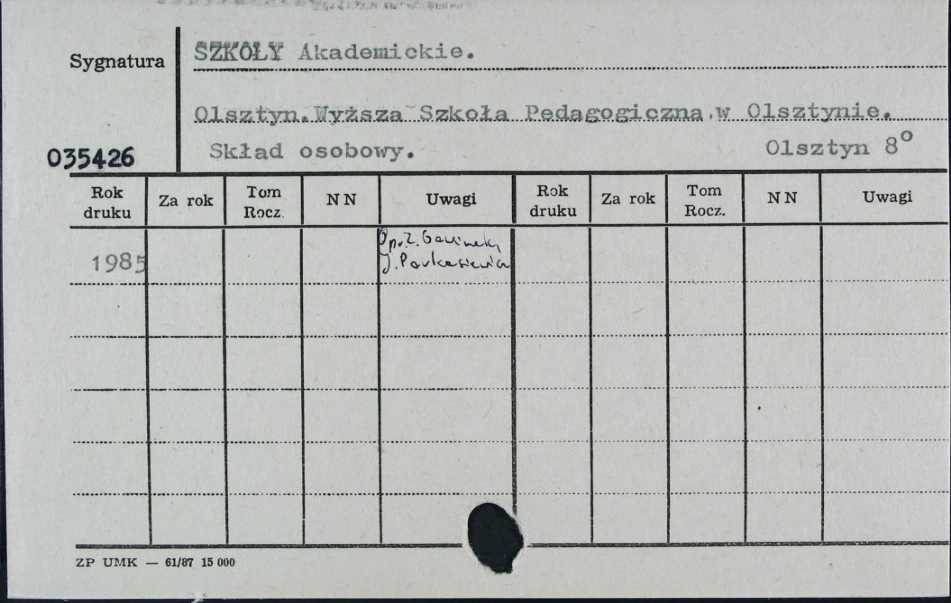 Sygnatura
SZKOŁY Akademickie.
Olsztyn. Wyższa Szkoła Pedagogiczna w Olsztynie.
035426
Skład osobowy. Olsztyn 8°
Rok druku Za rok Tom Rocz. N N Uwagi Rok druku Za rok Tom Rocz. N N Uwagi
1985
ZP UMK — 61/87 15 000